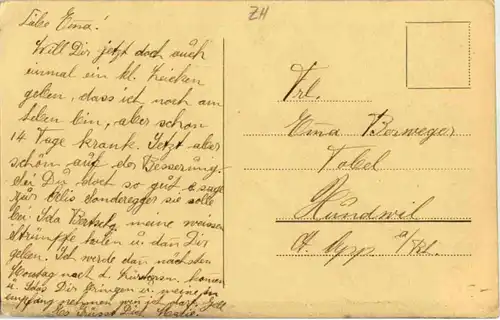 ZH
Liebe Ema!
Will Dir jetzt doch auch
einmal ein kl. Zeichen
geben, dass ich noch am
Leben bin, aber schon
14 Tage krank. Jetzt aber
schön auf der Besserung.
Sei Du doch so gut & sage
zur Elis Sonderegger sie solle
bei Ida meine weissen
Strümpfe holen u. dann Dir
geben. Ich werde dann nächsten
Montag nach d. kommen
u. Idas Dir bringen u. meine in
Empfang nehmen wen ich darf. Gell
Es Grüsst Dich
Frl.
Ema Berweger
Tobel
Hundwil
Kt. App. a/Rh.